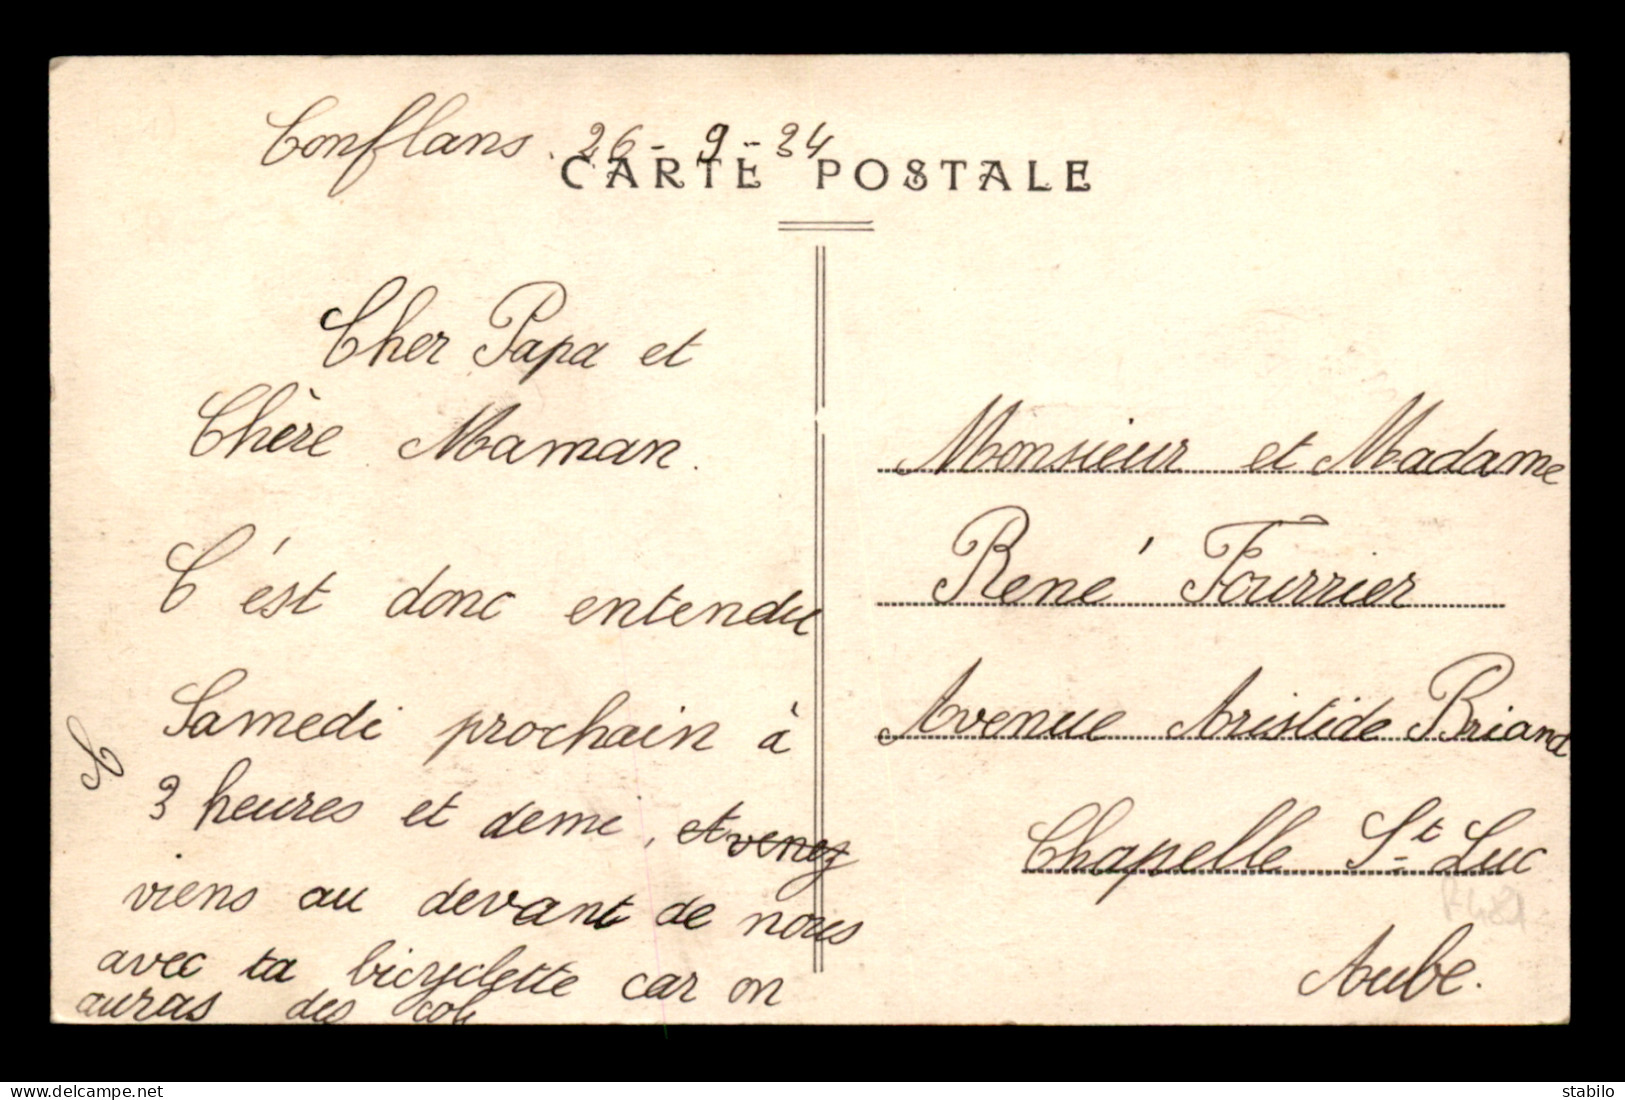 Conflans. 26-9-34
CARTE POSTALE
Cher Papa et
Chère Maman.
C'est donc entendu
Samedi prochain à
3 heures et demi, et venez
viens au devant de nous
avec ta bicyclette car on
auras des
Monsieur et Madame
René Fourrier
Avenue Aristide Briand
Chapelle St Luc
Aube.
https://www.delcampe.net
stabilo